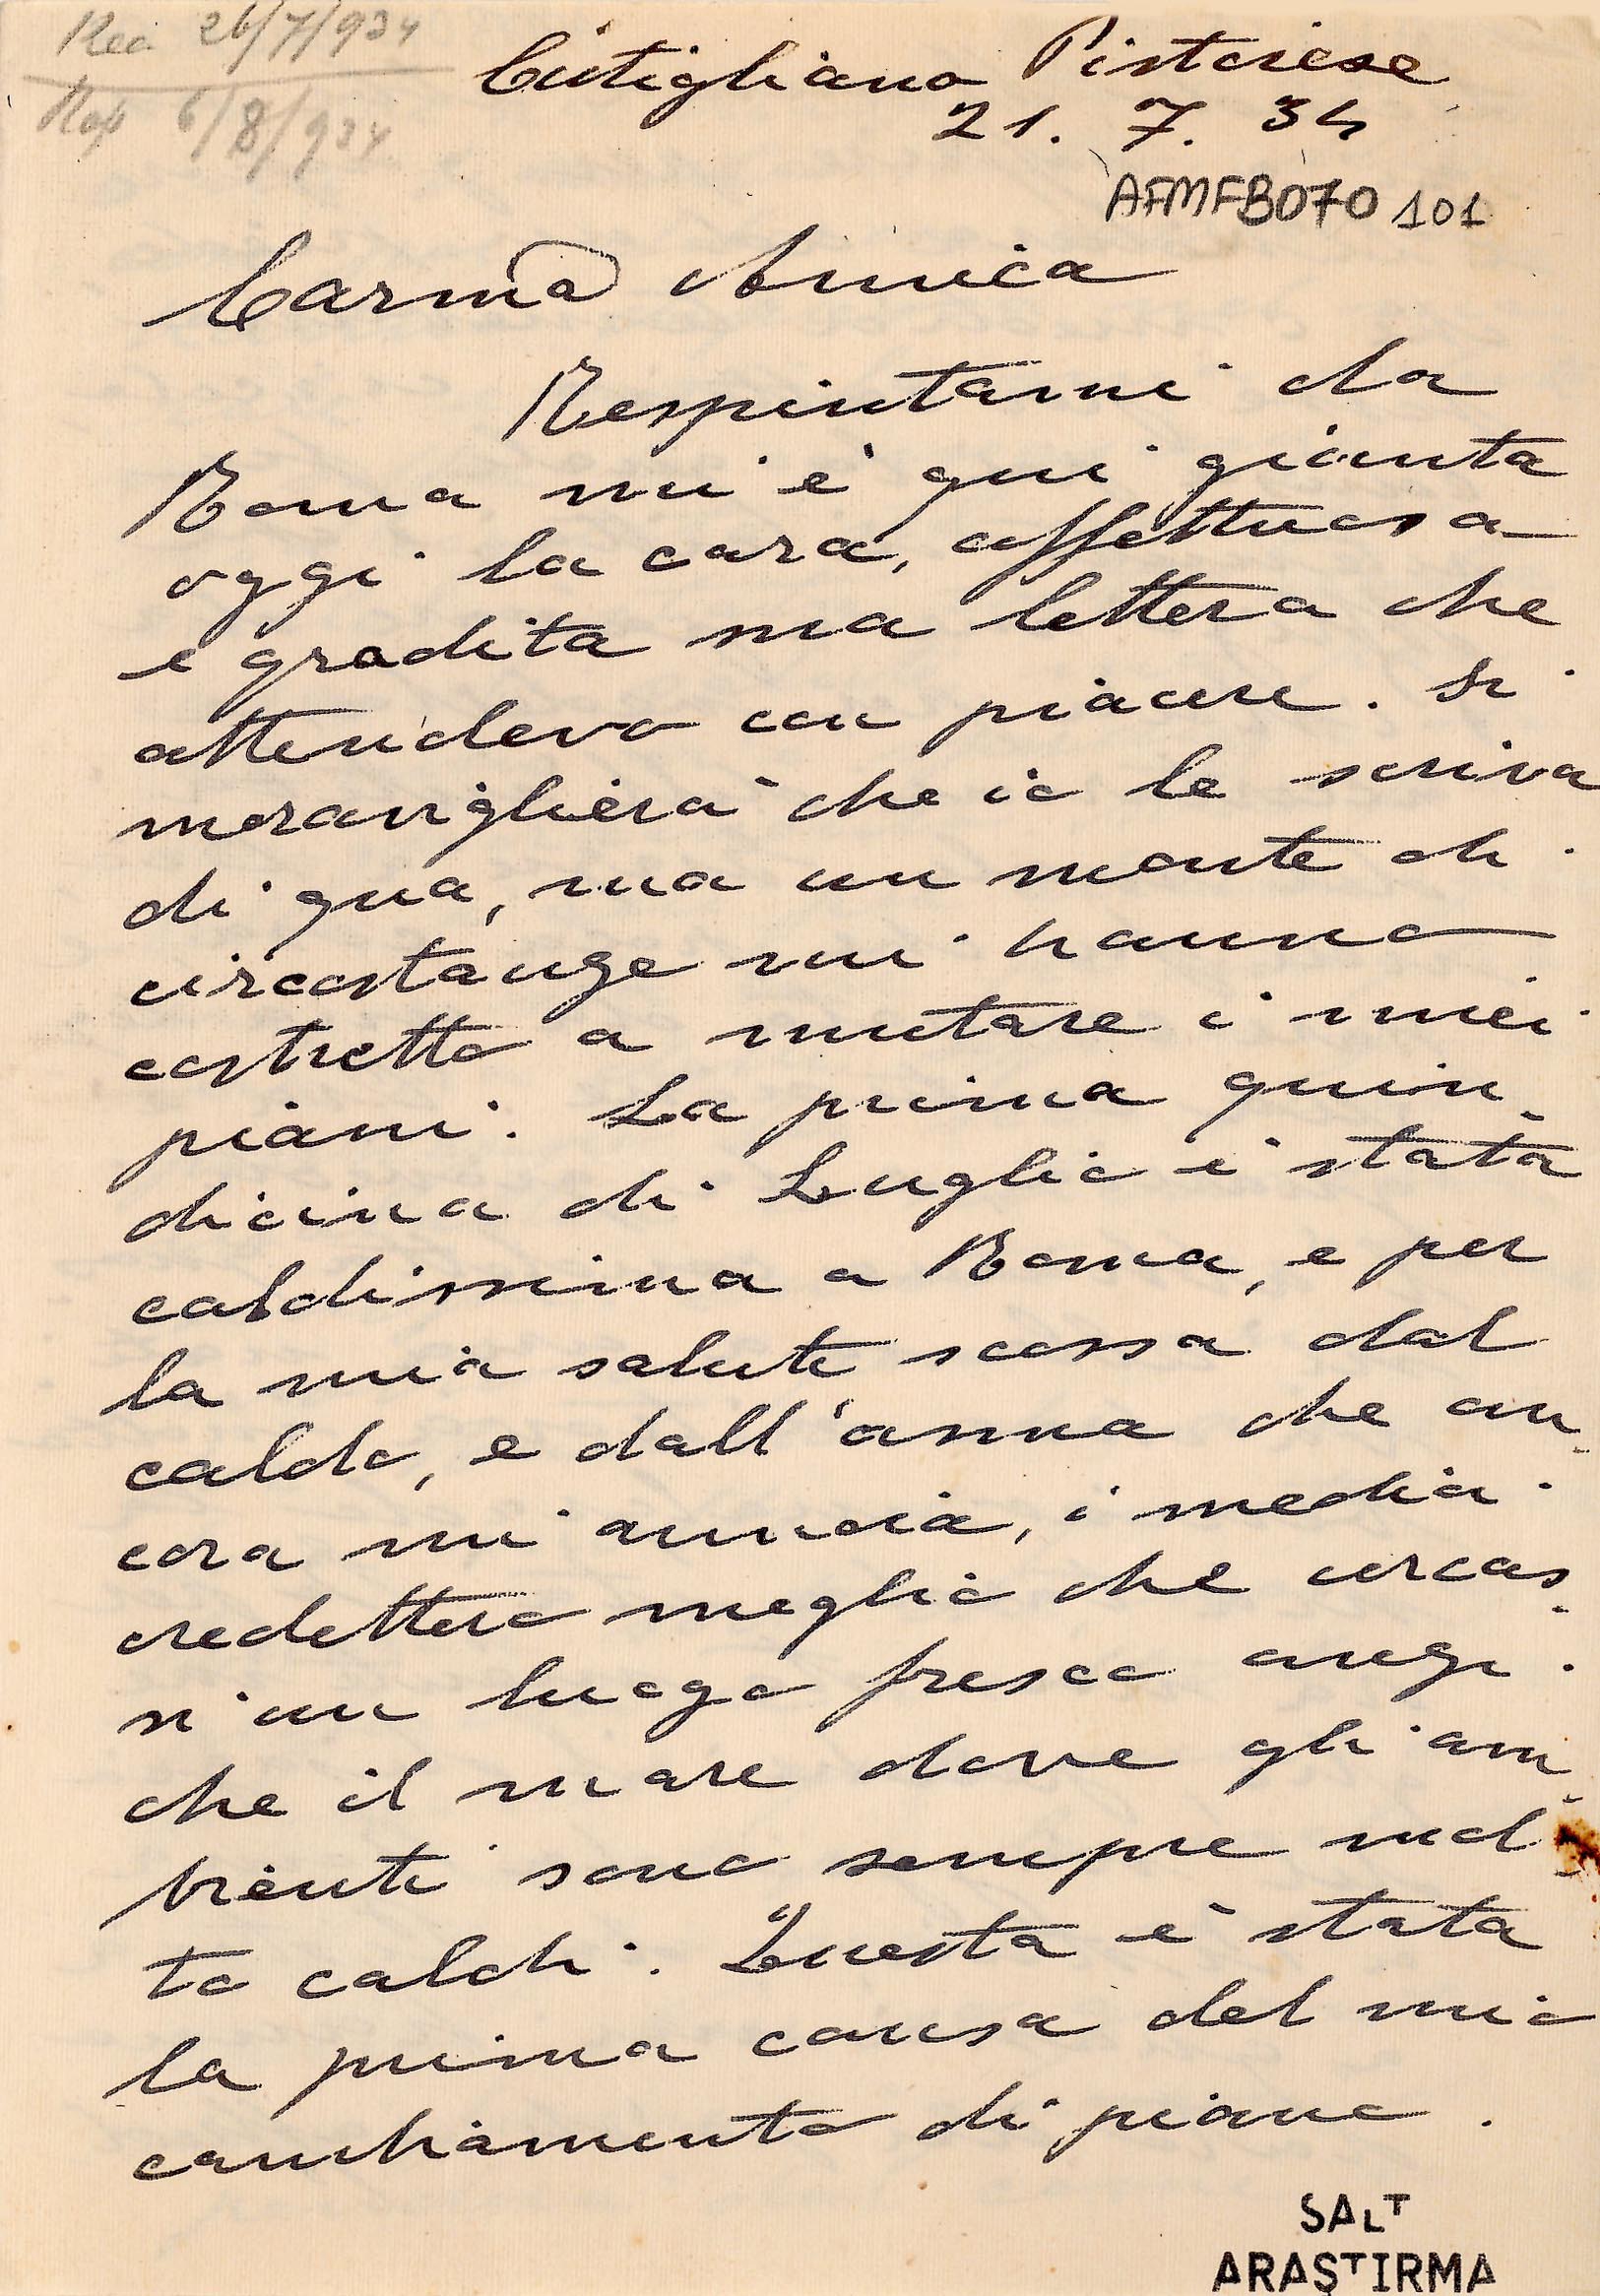 Rec 26/7/934
Rep 6/8/934
Cutigliano Pistoiese
21. 7. 34
AFMFB070 101
Carma Amica
Respintami da
Roma mi è qui giunta
oggi la cara, affettuosa
e gradita sua lettera che
attendevo con piacere. Si
meraviglierà che io le scriva
di qua, ma un monte di
circostanze mi hanno
costretto a mutare i miei
piani. La prima quin-
dicina di Luglio è stata
caldissima a Roma, e per
la mia salute scossa dal
caldo, e dall'asma che an-
cora mi annoia, i medici
credettero meglio che cercas-
si un luogo fresco anzi
che il mare dove gli am-
bienti sono sempre mol-
to caldi. Questa è stata
la prima causa del mio
cambiamento di piano.
SALT
ARAŞTIRMA